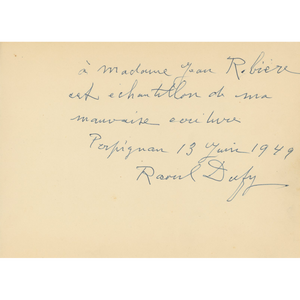 à madame Jean Ribière
cet echantillon de ma
mauvaise ecriture
Perpignan 13 Juin 1949
Raoul Dufy